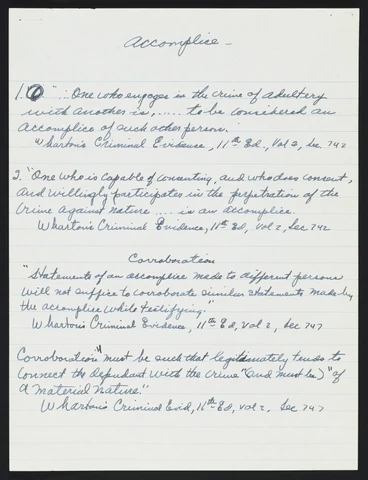 Accomplice —
1. "... One who engages in the crime of adultery
with another is, ..... to be considered an
accomplice of such other person.
Wharton's Criminal Evidence, 11th Ed., Vol 2, Sec 742
2. "One who is capable of consenting, and who does consent,
and willingly participates in the perpetration of the
crime against nature .... is an accomplice.
Wharton's Criminal Evidence, 11th Ed, Vol 2, Sec 742
Corroboration
"Statements of an accomplice made to different persons
will not suffice to corroborate similar statements made by
the accomplice while testifying."
Wharton's Criminal Evidence, 11th Ed, Vol 2, Sec 747
Corroboration "must be such that legitimately tends to
connect the defendant with the crime "(and must be)" of
a material nature."
Wharton's Criminal Evid, 11th Ed, Vol 2, Sec 747